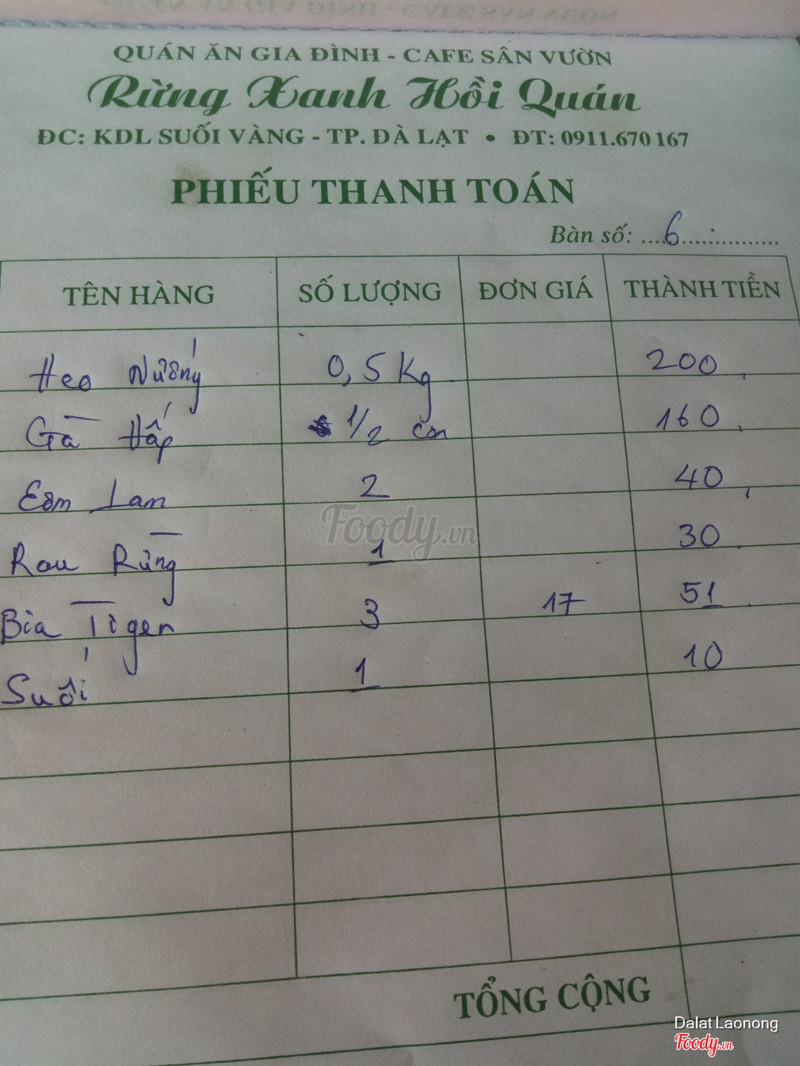 QUÁN ĂN GIA ĐÌNH - CAFE SÂN VƯỜN
Rừng Xanh Hồi Quán
ĐC: KDL SUỐI VÀNG - TP. ĐÀ LẠT • ĐT: 0911.670 167
PHIẾU THANH TOÁN
Bàn số: ....6................
TÊN HÀNG SỐ LƯỢNG ĐƠN GIÁ THÀNH TIỀN
Heo Nướng 0,5 Kg 200
Gà Hấp 1/2 con 160
Cơm Lam 2 40
Rau Rừng 1 30
Bia Tigen 3 17 51
Suối 1 10
Foody.vn
TỔNG CỘNG
Dalat Laonong
Foody.vn